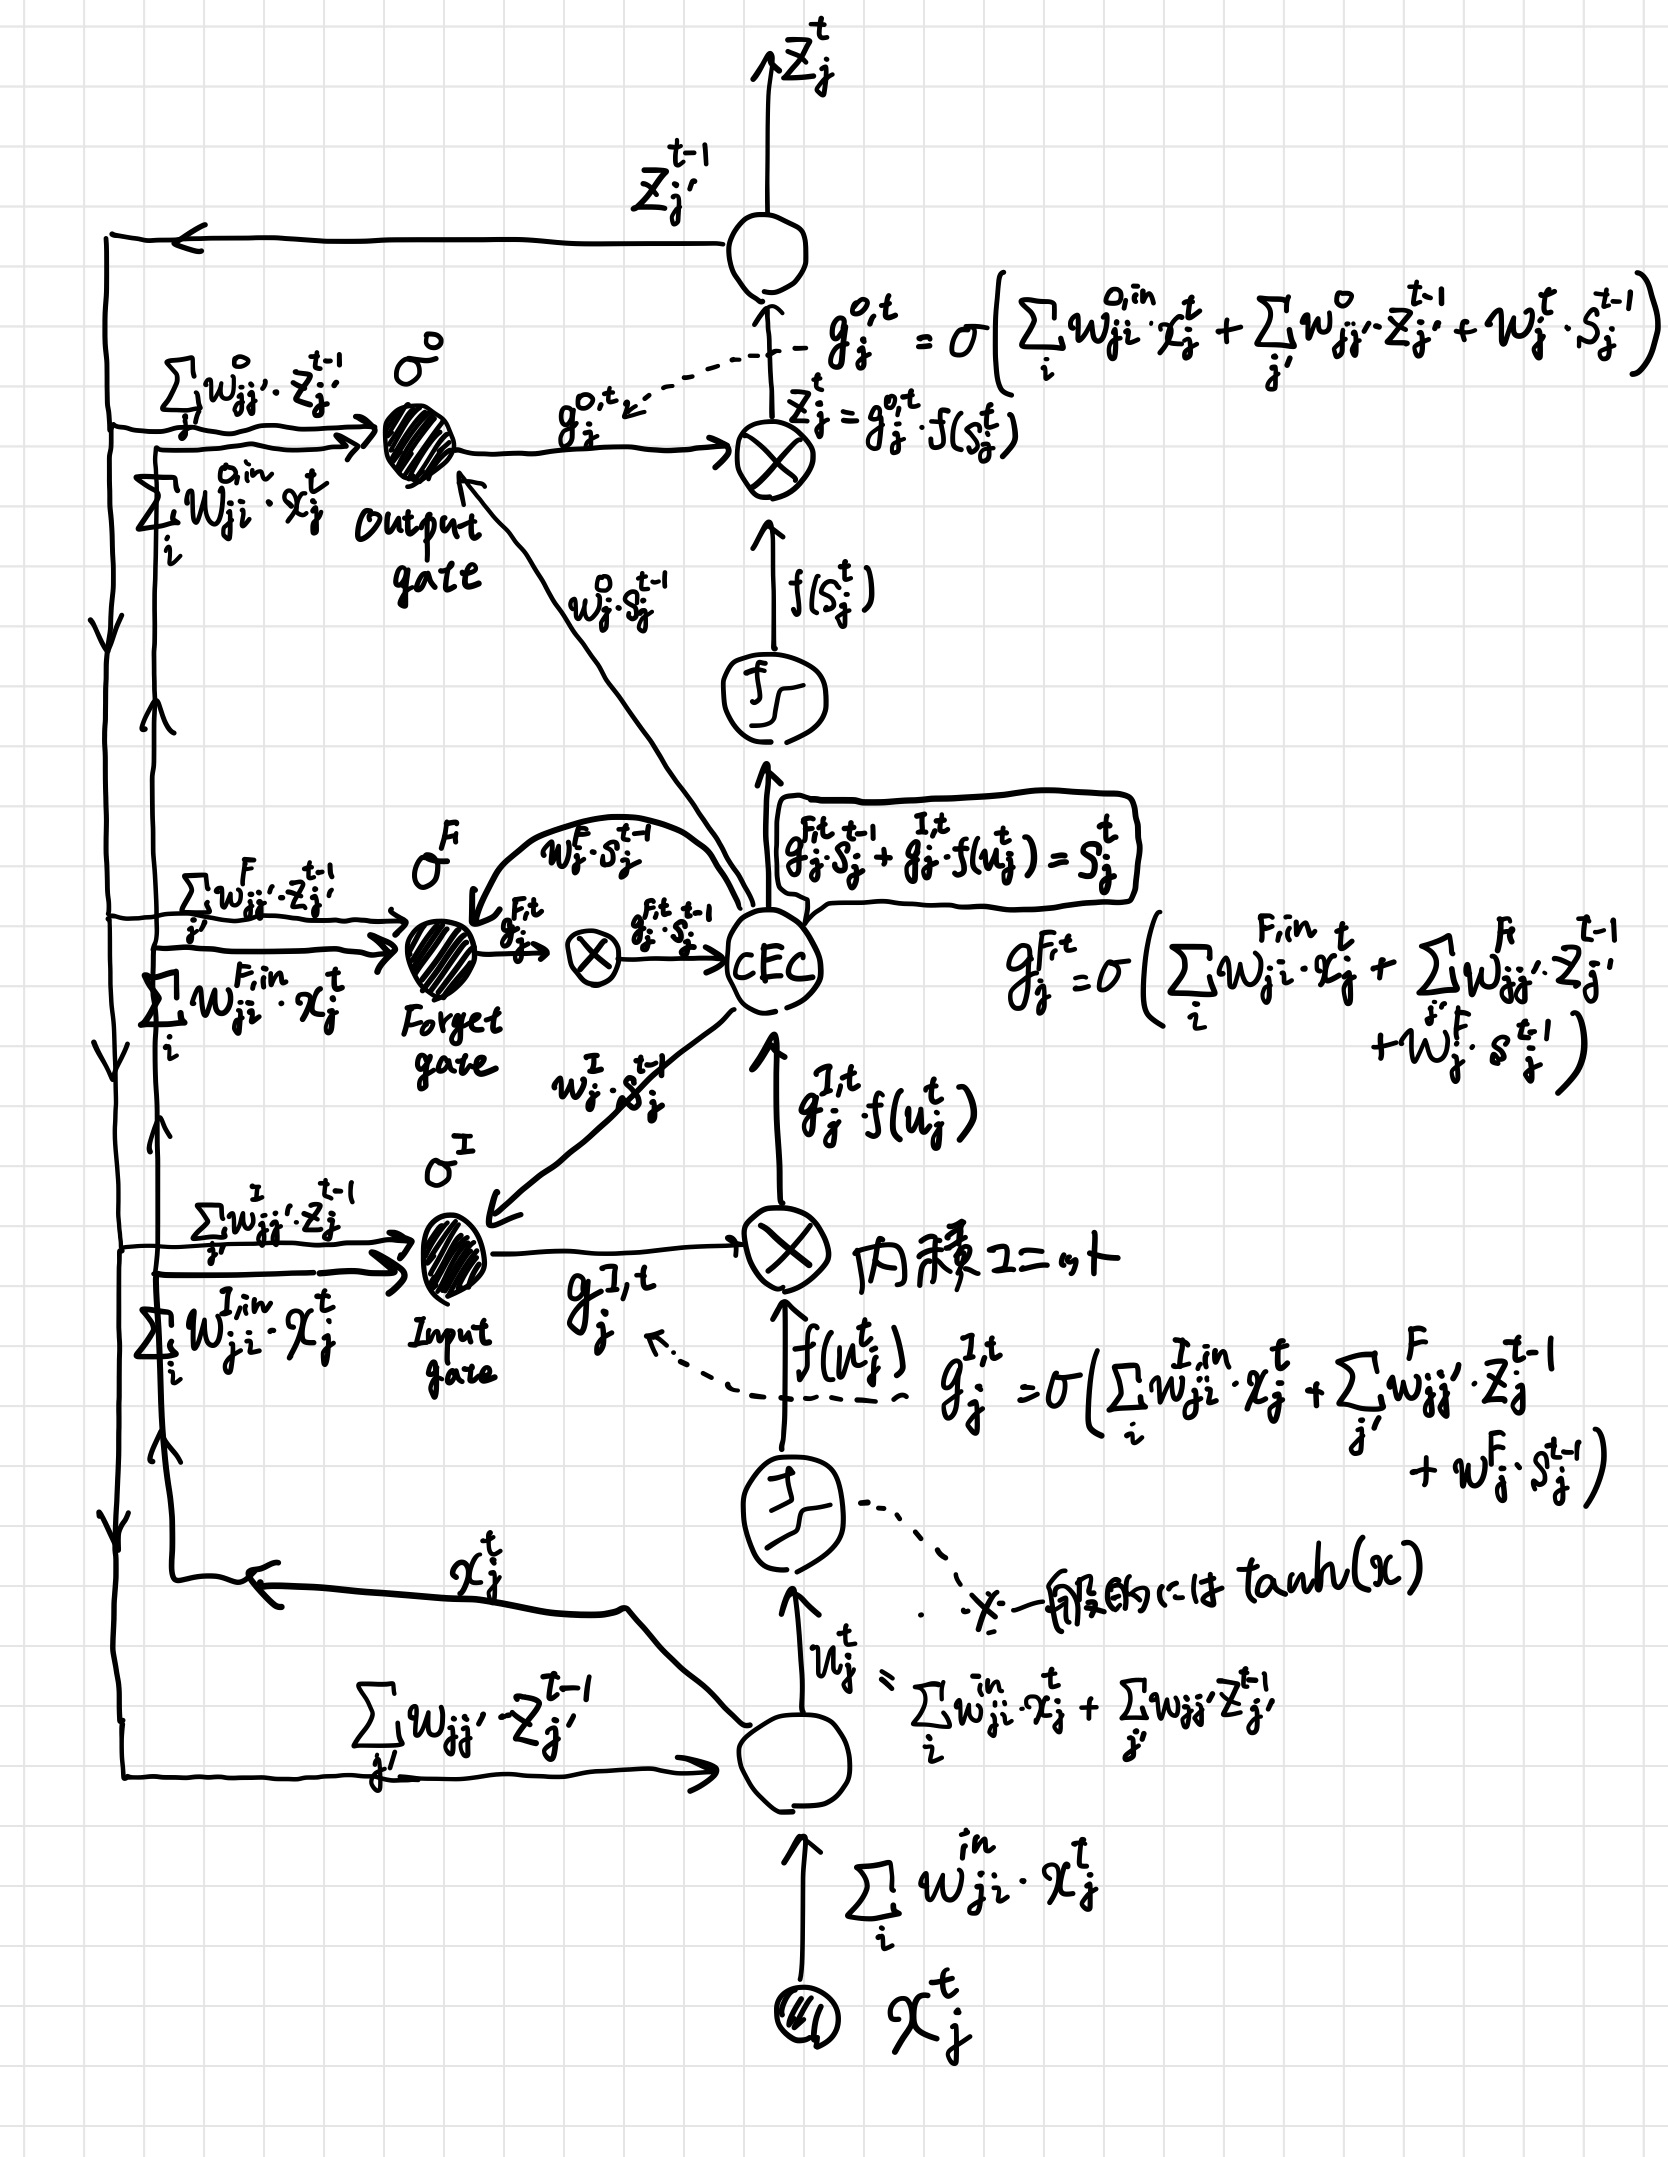 z_j^t
z_{j'}^{t-1}
g_j^{O,t} = σ(Σ_i w_{ji}^{O,in}・x_j^t + Σ_{j'} w_{jj'}^O・z_{j'}^{t-1} + w_j^t・s_j^{t-1})
σ^O
Σ_{j'} w_{jj'}^O・z_{j'}^{t-1}
g_j^{O,t}
z_j^t = g_j^{O,t}・f(s_j^t)
Σ_i w_{ji}^{O,in}・x_j^t
Output
gate
w_j^O・s_j^{t-1}
f(s_j^t)
f
σ^F
w_j^F・s_j^{t-1}
g_j^{F,t}・s_j^{t-1} + g_j^{I,t}・f(u_j^t) = s_j^t
Σ_{j'} w_{jj'}^F・z_{j'}^{t-1}
g_j^{F,t}
g_j^{F,t}・s_j^{t-1}
CEC
g_j^{F,t} = σ(Σ_i w_{ji}^{F,in}・x_j^t + Σ_{j'} w_{jj'}^F・z_{j'}^{t-1}
+ w_j^F・s_j^{t-1})
Σ_i w_{ji}^{F,in}・x_j^t
Forget
gate
w_j^I・s_j^{t-1}
g_j^{I,t}・f(u_j^t)
σ^I
Σ_{j'} w_{jj'}^I・z_j^{t-1}
内積ユニット
g_j^{I,t}
Σ_i w_{ji}^{I,in}・x_j^t
Input
gate
f(u_j^t)
g_j^{I,t} = σ(Σ_i w_{ji}^{I,in}・x_j^t + Σ_{j'} w_{jj'}^F・z_j^{t-1}
+ w_j^F・s_j^{t-1})
f
x_j^t
※一般的には tanh(x)
u_j^t = Σ_i w_{ji}^{in}・x_j^t + Σ_{j'} w_{jj'} z_{j'}^{t-1}
Σ_{j'} w_{jj'}・z_{j'}^{t-1}
Σ_i w_{ji}^{in}・x_j^t
x_j^t